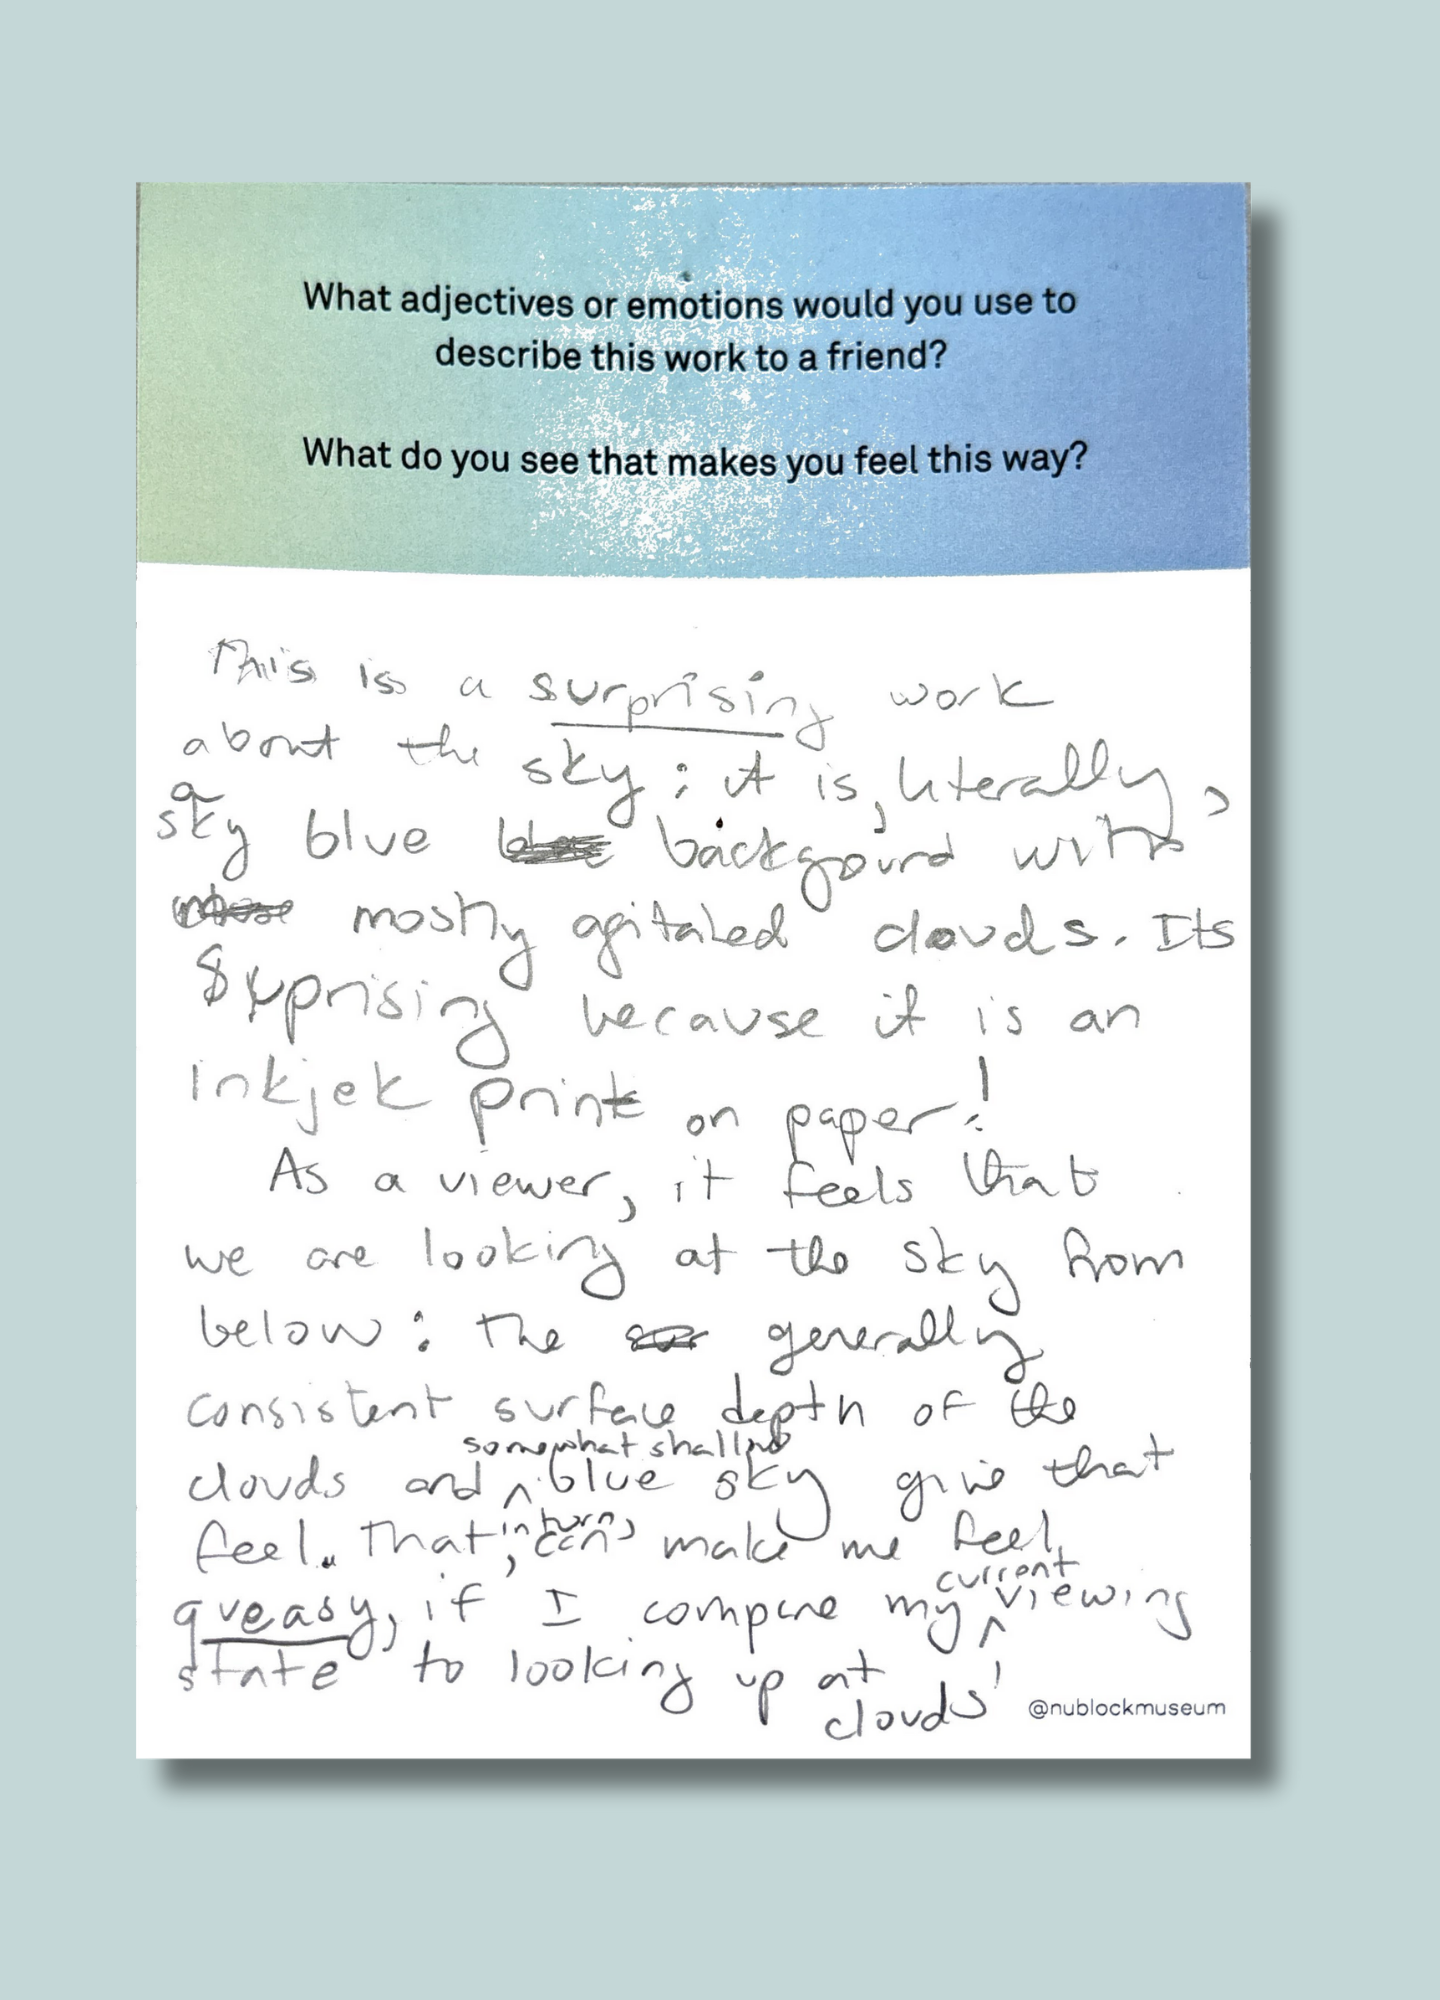 What adjectives or emotions would you use to
describe this work to a friend?
What do you see that makes you feel this way?
This is a surprising work
about the sky; it is, literally,
a
sky blue backgound with
mostly agitated clouds. Its
Surprising because it is an
inkjet print on paper!
As a viewer, it feels that
we are looking at the sky from
below: the generally
consistent surface depth of the
somewhat shallow
clouds and ^ blue sky give that
feel. That, in turn, can make me feel
current
queasy, if I compare my ^ viewing
state to looking up at
clouds!
@nublockmuseum